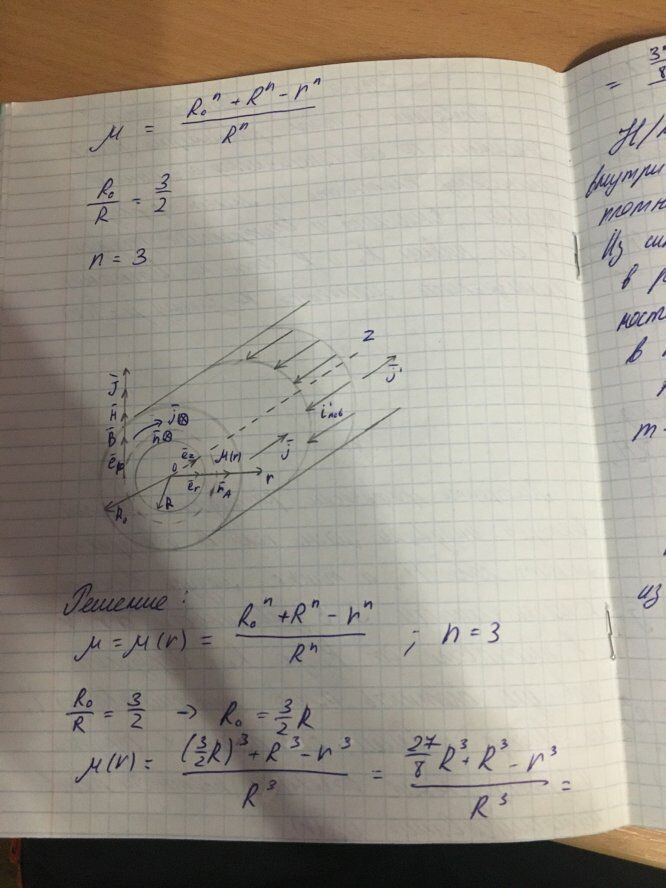 μ = (R₀ⁿ + Rⁿ - rⁿ) / Rⁿ
R₀/R = 3/2
n = 3
z
J̄
H̄
B̄
ēφ
j̄ ⊗
n̄ ⊗
ē_z
0
μ(r)
ē_r
n̄_A
r
R
R₀
j̄
i'пов
j̄'
Решение:
μ = μ(r) = (R₀ⁿ + Rⁿ - rⁿ) / Rⁿ ; n = 3
R₀/R = 3/2 → R₀ = 3/2 R
μ(r) = ((3/2 R)³ + R³ - r³) / R³ = (27/8 R³ + R³ - r³) / R³ =
=
внутри
Из
в
в
из